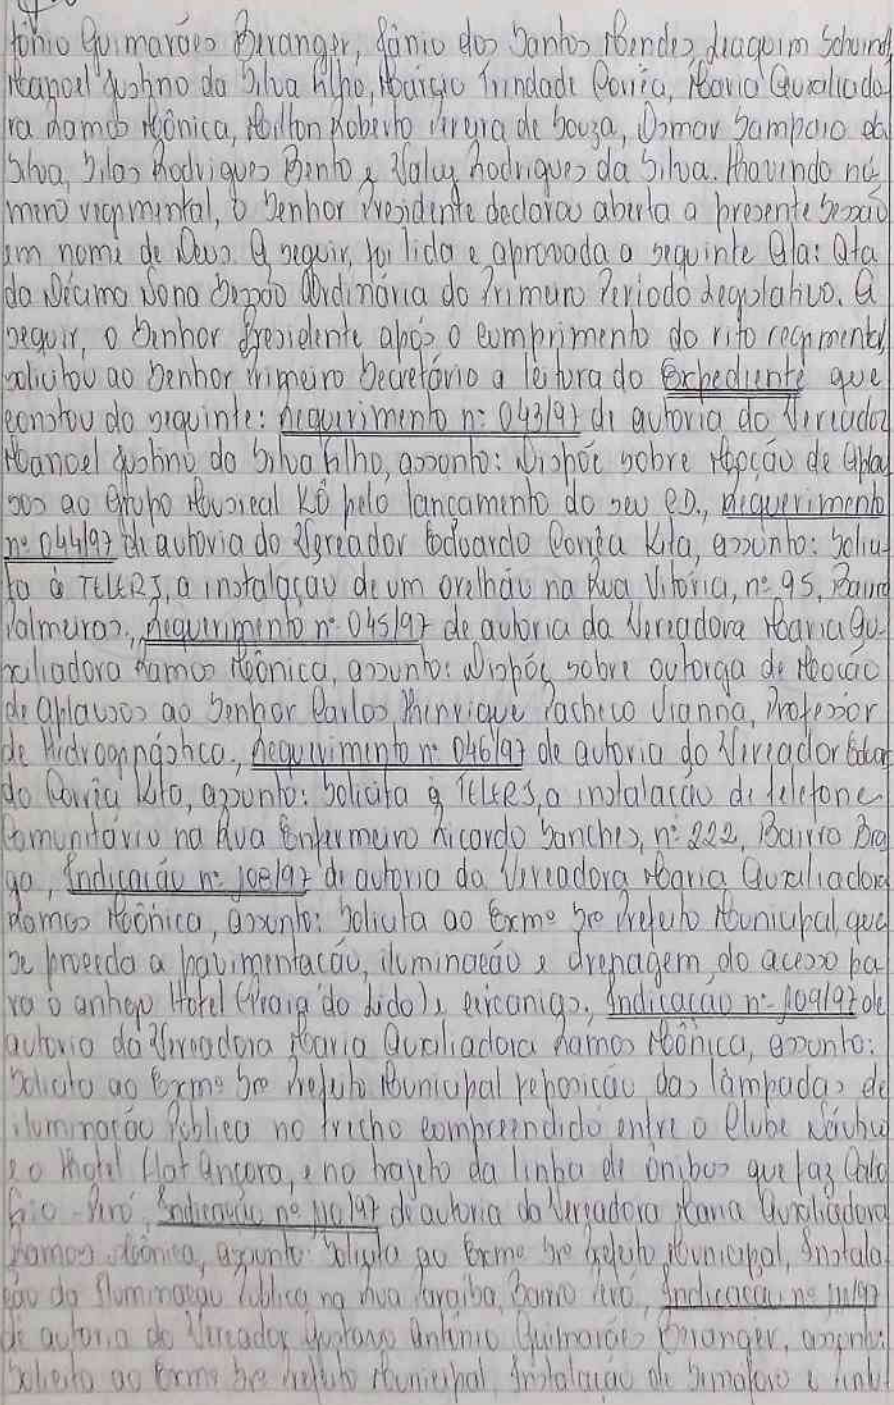 tônio Guimarães Beranger, Jânio dos Santos Mendes, Joaquim Schuind
Manoel Justino da Silva Filho, Márcio Trindade Corrêa, Maria Auxiliado-
ra Ramos Mônica, Milton Roberto Pereira de Souza, Osmar Sampaio da
Silva, Silas Rodrigues Bento e Valcy Rodrigues da Silva. Havendo nú-
mero regimental, o Senhor Presidente declarou aberta a presente Sessão
em nome de Deus. A seguir, foi lida e aprovada a seguinte Ata: Ata
da Décima Nona Sessão Ordinária do Primeiro Período Legislativo. A
seguir, o Senhor Presidente após o cumprimento do rito regimental,
solicitou ao Senhor Primeiro Secretário a leitura do Expediente que
constou do seguinte: Requerimento nº 043/97 de autoria do Vereador
Manoel Justino da Silva Filho, assunto: Dispõe sobre Moção de Aplau-
sos ao Grupo Musical Kô pelo lançamento do seu CD., Requerimento
nº 044/97 de autoria do Vereador Eduardo Corrêa Kita, assunto: Solici-
ta à TELERJ, a instalação de um orelhão na Rua Vitória, nº 95, Bairro
Palmeiras., Requerimento nº 045/97 de autoria da Vereadora Maria Au-
xiliadora Ramos Mônica, assunto: Dispõe sobre outorga de Moção
de Aplausos ao Senhor Carlos Henrique Pacheco Vianna, Professor
de Hidroginástica., Requerimento nº 046/97 de autoria do Vereador Eduar
do Corrêa Kita, assunto: Solicita à TELERJ, a instalação de telefone
Comunitário na Rua Enfermeiro Ricardo Sanches, nº 222, Bairro Bra
ga, Indicação nº 108/97 de autoria da Vereadora Maria Auxiliadora
Ramos Mônica, assunto: Solicita ao Exmº Srº Prefeito Municipal, que
se proceda a pavimentação, iluminação e drenagem, do acesso pa-
ra o antigo Hotel (Praia do Lido) e cercanias., Indicação nº 109/97 de
autoria da Vereadora Maria Auxiliadora Ramos Mônica, assunto:
Solicita ao Exmº Srº Prefeito Municipal reposição das lâmpadas de
iluminação Pública no trecho compreendido entre o Clube Náutico
e o Hotel Flat Âncora, e no trajeto da linha de ônibus que faz Cabo
Frio - Peró, Indicação nº 110/97 de autoria da Vereadora Maria Auxiliadora
Ramos Mônica, assunto: Solicita ao Exmº Srº Prefeito Municipal, Instala
ção da Iluminação Pública na Rua Paraíba, Bairro Peró, Indicação nº 111/97
de autoria do Vereador Gustavo Antônio Guimarães Beranger, assunto:
Solicita ao Exmº Srº Prefeito Municipal, Instalação de Semáforo e